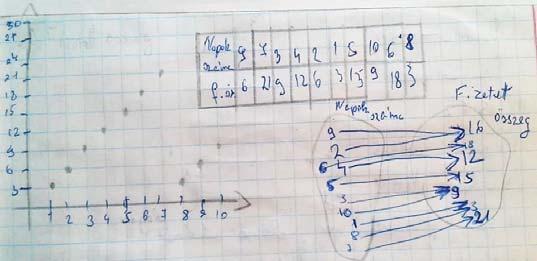 30
27
24
21
18
15
12
9
6
3
1 2 3 4 5 6 7 8 9 10
Napok száma 9 7 3 4 2 1 5 10 6 8
6 21 9 12 6 3 15 9 18 3
Napok száma
Fizetett összeg
9
2
6 4
5
3
10
1
8
7
6
18
12
15
9
3
21